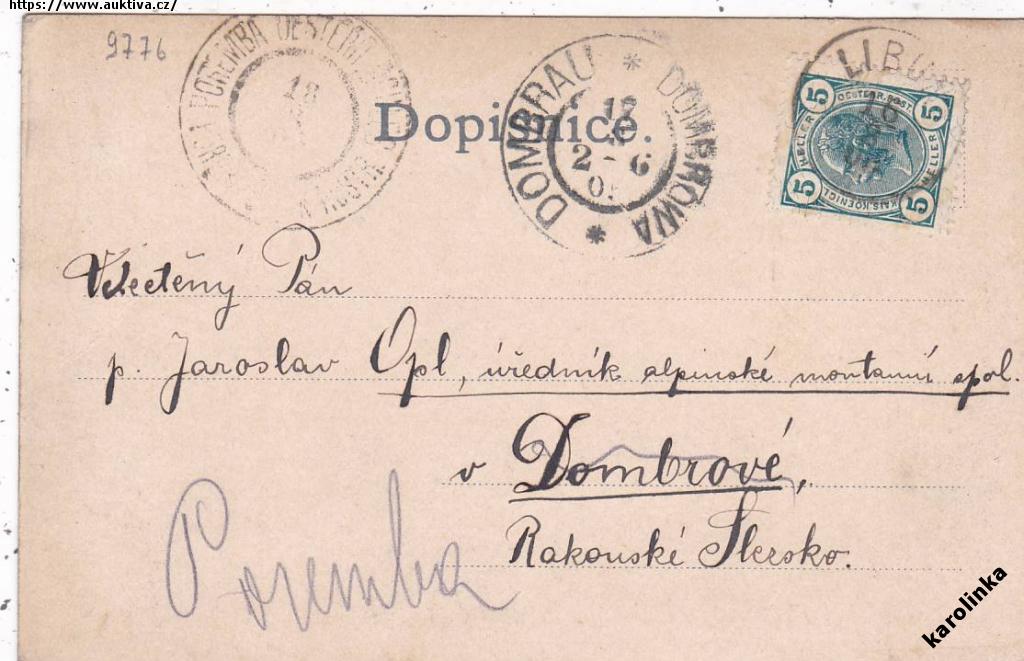 https://www.auktiva.cz/
9776
POREMBA
18
DOMBRAU * DOMBROWA *
2-6
Dopisnice.
LIBU
OESTERR. POST
5 5 5 5
HELLER HELLER
KAIS. KOENIGL.
Velectěný Pán
p. Jaroslav Opl, úředník alpinské montanní spol.
v Dombrové,
Rakouské Slezsko.
Poremba
karolinka